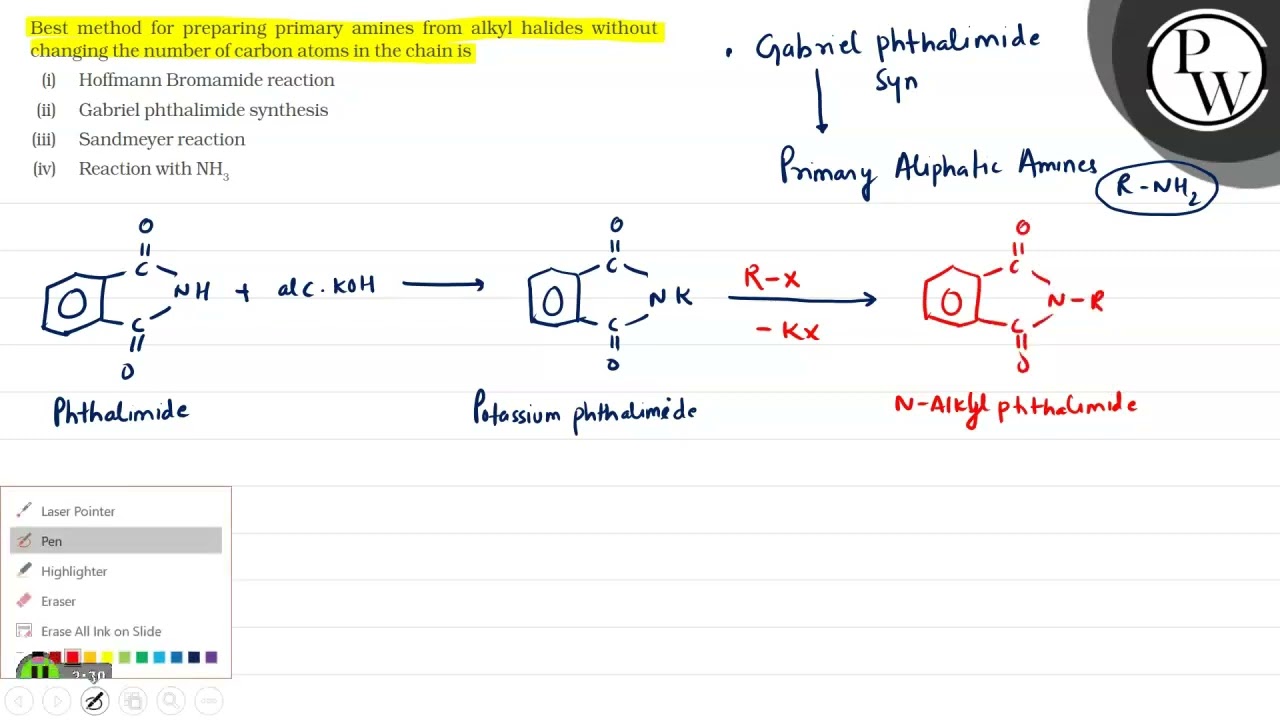 Best method for preparing primary amines from alkyl halides without
changing the number of carbon atoms in the chain is
(i) Hoffmann Bromamide reaction
(ii) Gabriel phthalimide synthesis
(iii) Sandmeyer reaction
(iv) Reaction with NH3
• Gabriel phthalimide
syn
Primary Aliphatic Amines
R-NH2
PW
O
||
C
NH + alc. KOH
C
||
O
Phthalimide
O
||
C
NK
C
||
O
Potassium phthalimide
R-X
-KX
O
||
C
N-R
C
||
O
N-Alkyl phthalimide
Laser Pointer
Pen
Highlighter
Eraser
Erase All Ink on Slide
2:30